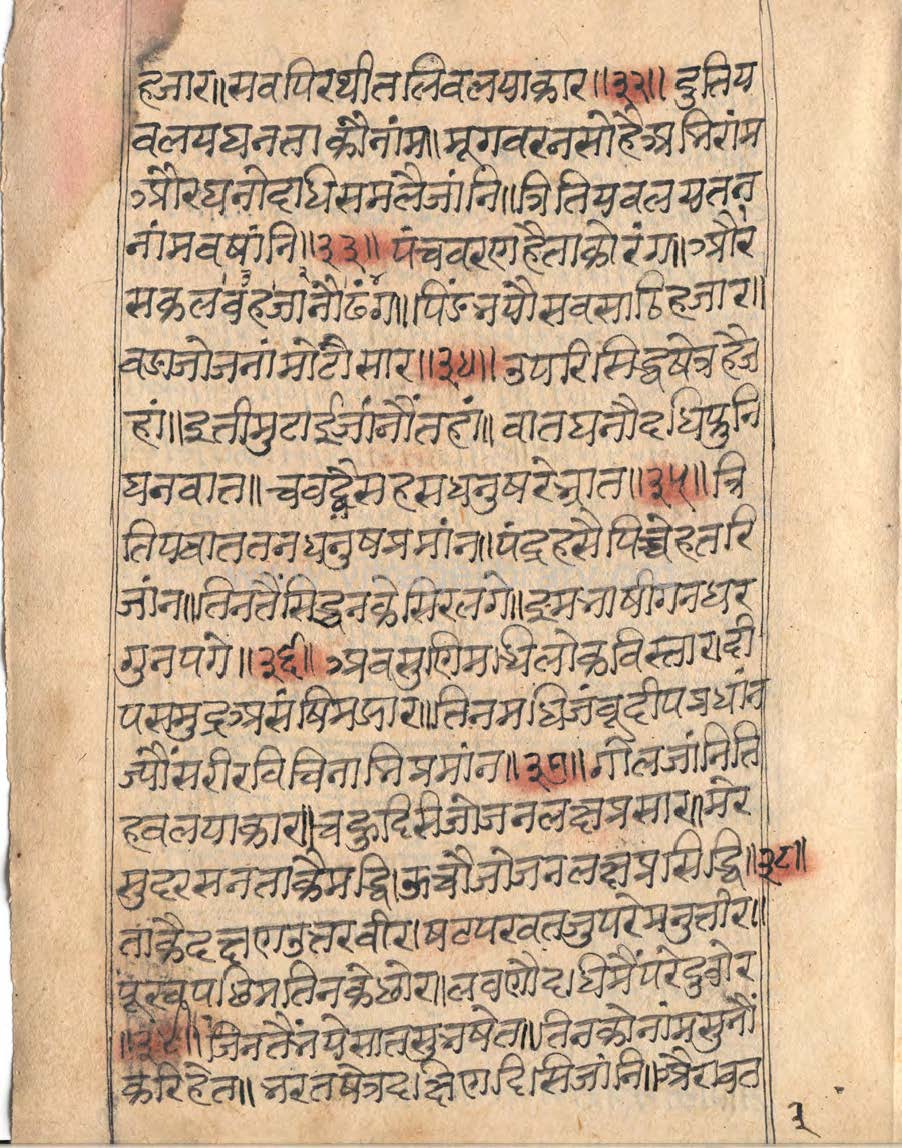 हजार॥सवपिरथीतलिवलयाकार॥३२॥ दुतिय
वलयघनताकौनांम॥मूगवरनसोहैअभिरांम
औरघनोदधिसमलैजांनि॥त्रितियवलयतन
नांमवषांनि॥३३॥ पंचवरणहैताकोरंग॥और
सकलवहजांनौढंग॥पिंडनयौसवसाठिहजार॥
वडाजोजनांमोटौसार॥३४॥ उपरिसिद्धषेत्रहैज
हां॥इतीमुटाईजांनौंतहां॥ वातघनौदधिफुनि
घनवात॥ चवद्वैसहसधनुषरेभ्रात॥३५॥ त्रि
तियवाततनधनुषप्रमांन॥पंद्रहसैपिचेहतरि
जांन॥तिनतैंसिद्धनकेसिरलगे॥इमभाषीगनधर
गुनपगे॥३६॥ अवसुणिमधिलोकविस्तार।दी
पसमुद्रअसंषिमझार॥तिनमधिजंवूदीपप्रधांन
ज्यौंसरीरविचिनाभिप्रमांन॥३७॥ गोलजांनिति
हवलयाकार॥चहुदिसिजोजनलक्षप्रसार॥मेर
सुदरसनताकैमद्धि।ऊचौजोजनलक्षप्रसिद्धि॥३८॥
ताकैदक्षणउत्तरवीर।षटपरवतजुपरेमनुतीर॥
पूरवपछिमतिनकेछोर॥लवणौदधिमैंपरेदुवोर
॥३९॥ जिनतैंभयेसातसुभषेत॥तिनकोनांमसुनौं
करिहेत॥ भरतषेत्रदक्षिणदिसिजांनि॥अैरावत
३